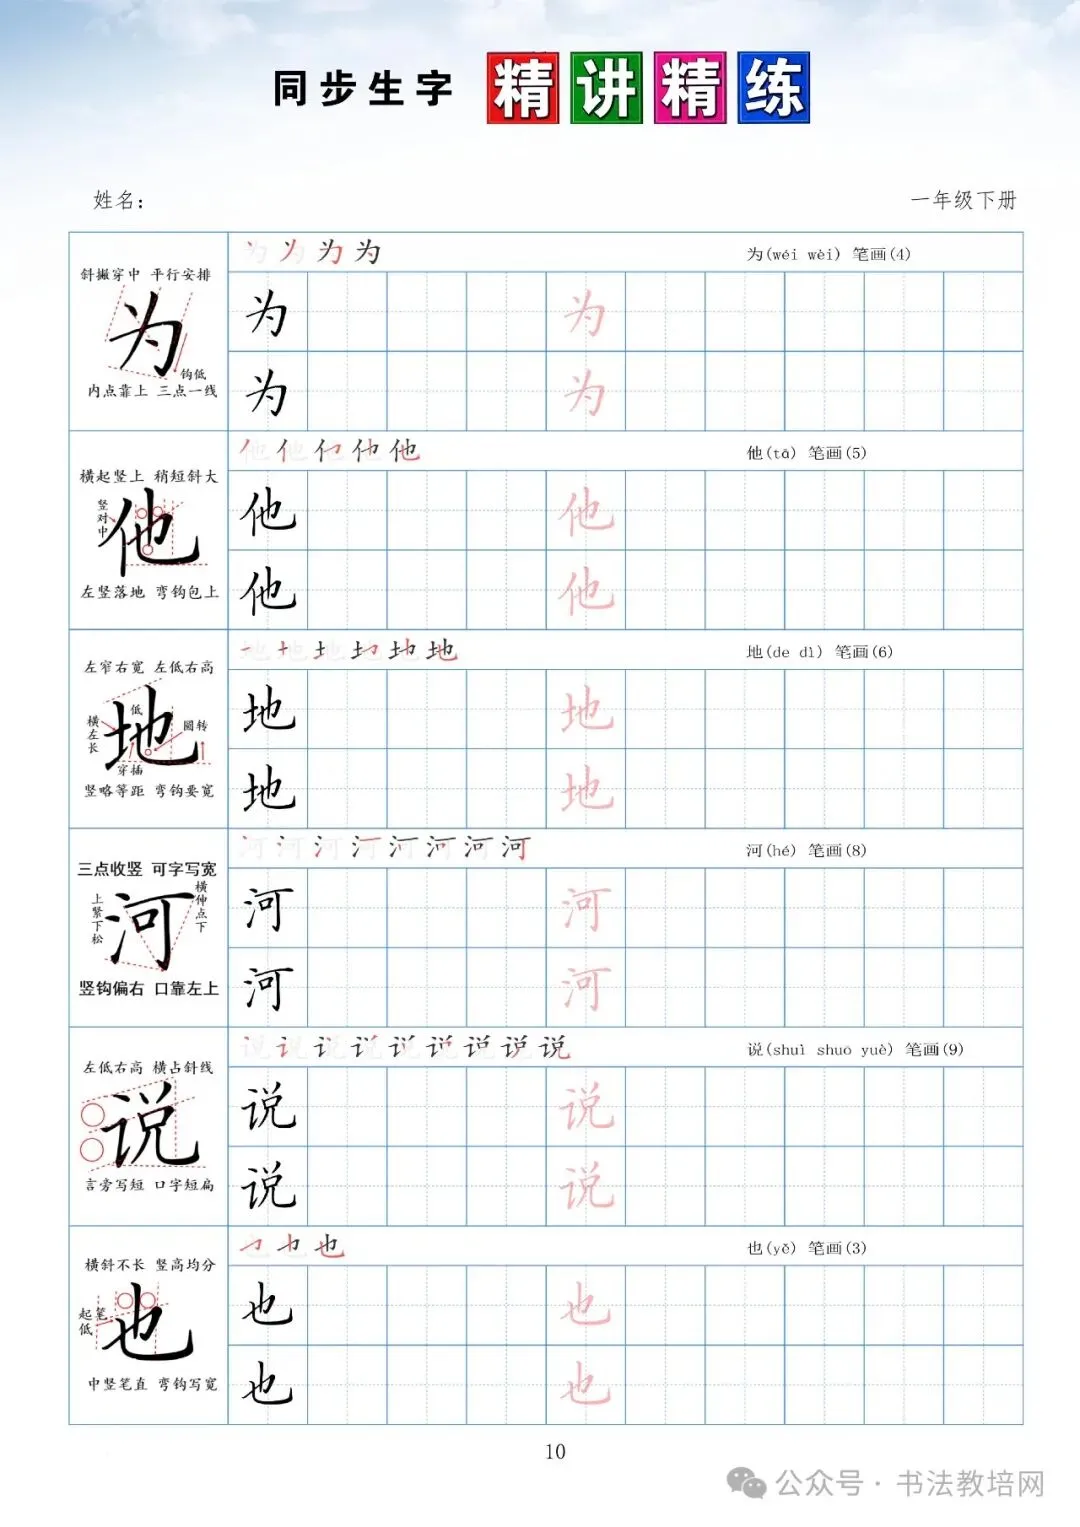 同步生字 精讲精练
姓名：
一年级下册
斜撇穿中 平行安排
为
钩低
内点靠上 三点一线
为 为 为 为
为(wéi wèi) 笔画(4)
为 为
为 为
横起竖上 稍短斜大
竖对中
他
左竖落地 弯钩包上
他 他 他 他 他
他(tā) 笔画(5)
他 他
他 他
左窄右宽 左低右高
低
横左长
地
圆转
穿插
竖略等距 弯钩要宽
地 地 地 地 地 地
地(de dì) 笔画(6)
地 地
地 地
三点收竖 可字写宽
上紧下松
河
横伸点下
竖钩偏右 口靠左上
河 河 河 河 河 河 河 河
河(hé) 笔画(8)
河 河
河 河
左低右高 横占斜线
说
言旁写短 口字短扁
说 说 说 说 说 说 说 说 说
说(shuì shuo yuè) 笔画(9)
说 说
说 说
横斜不长 竖高均分
起笔低
也
中竖笔直 弯钩写宽
也 也 也
也(yě) 笔画(3)
也 也
也 也
10
公众号·书法教培网